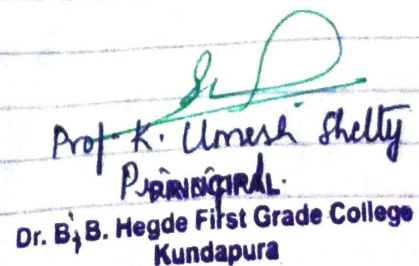 Prof. K. Umesh Shetty
Principal.
PRINCIPAL
Dr. B. B. Hegde First Grade College
Kundapura